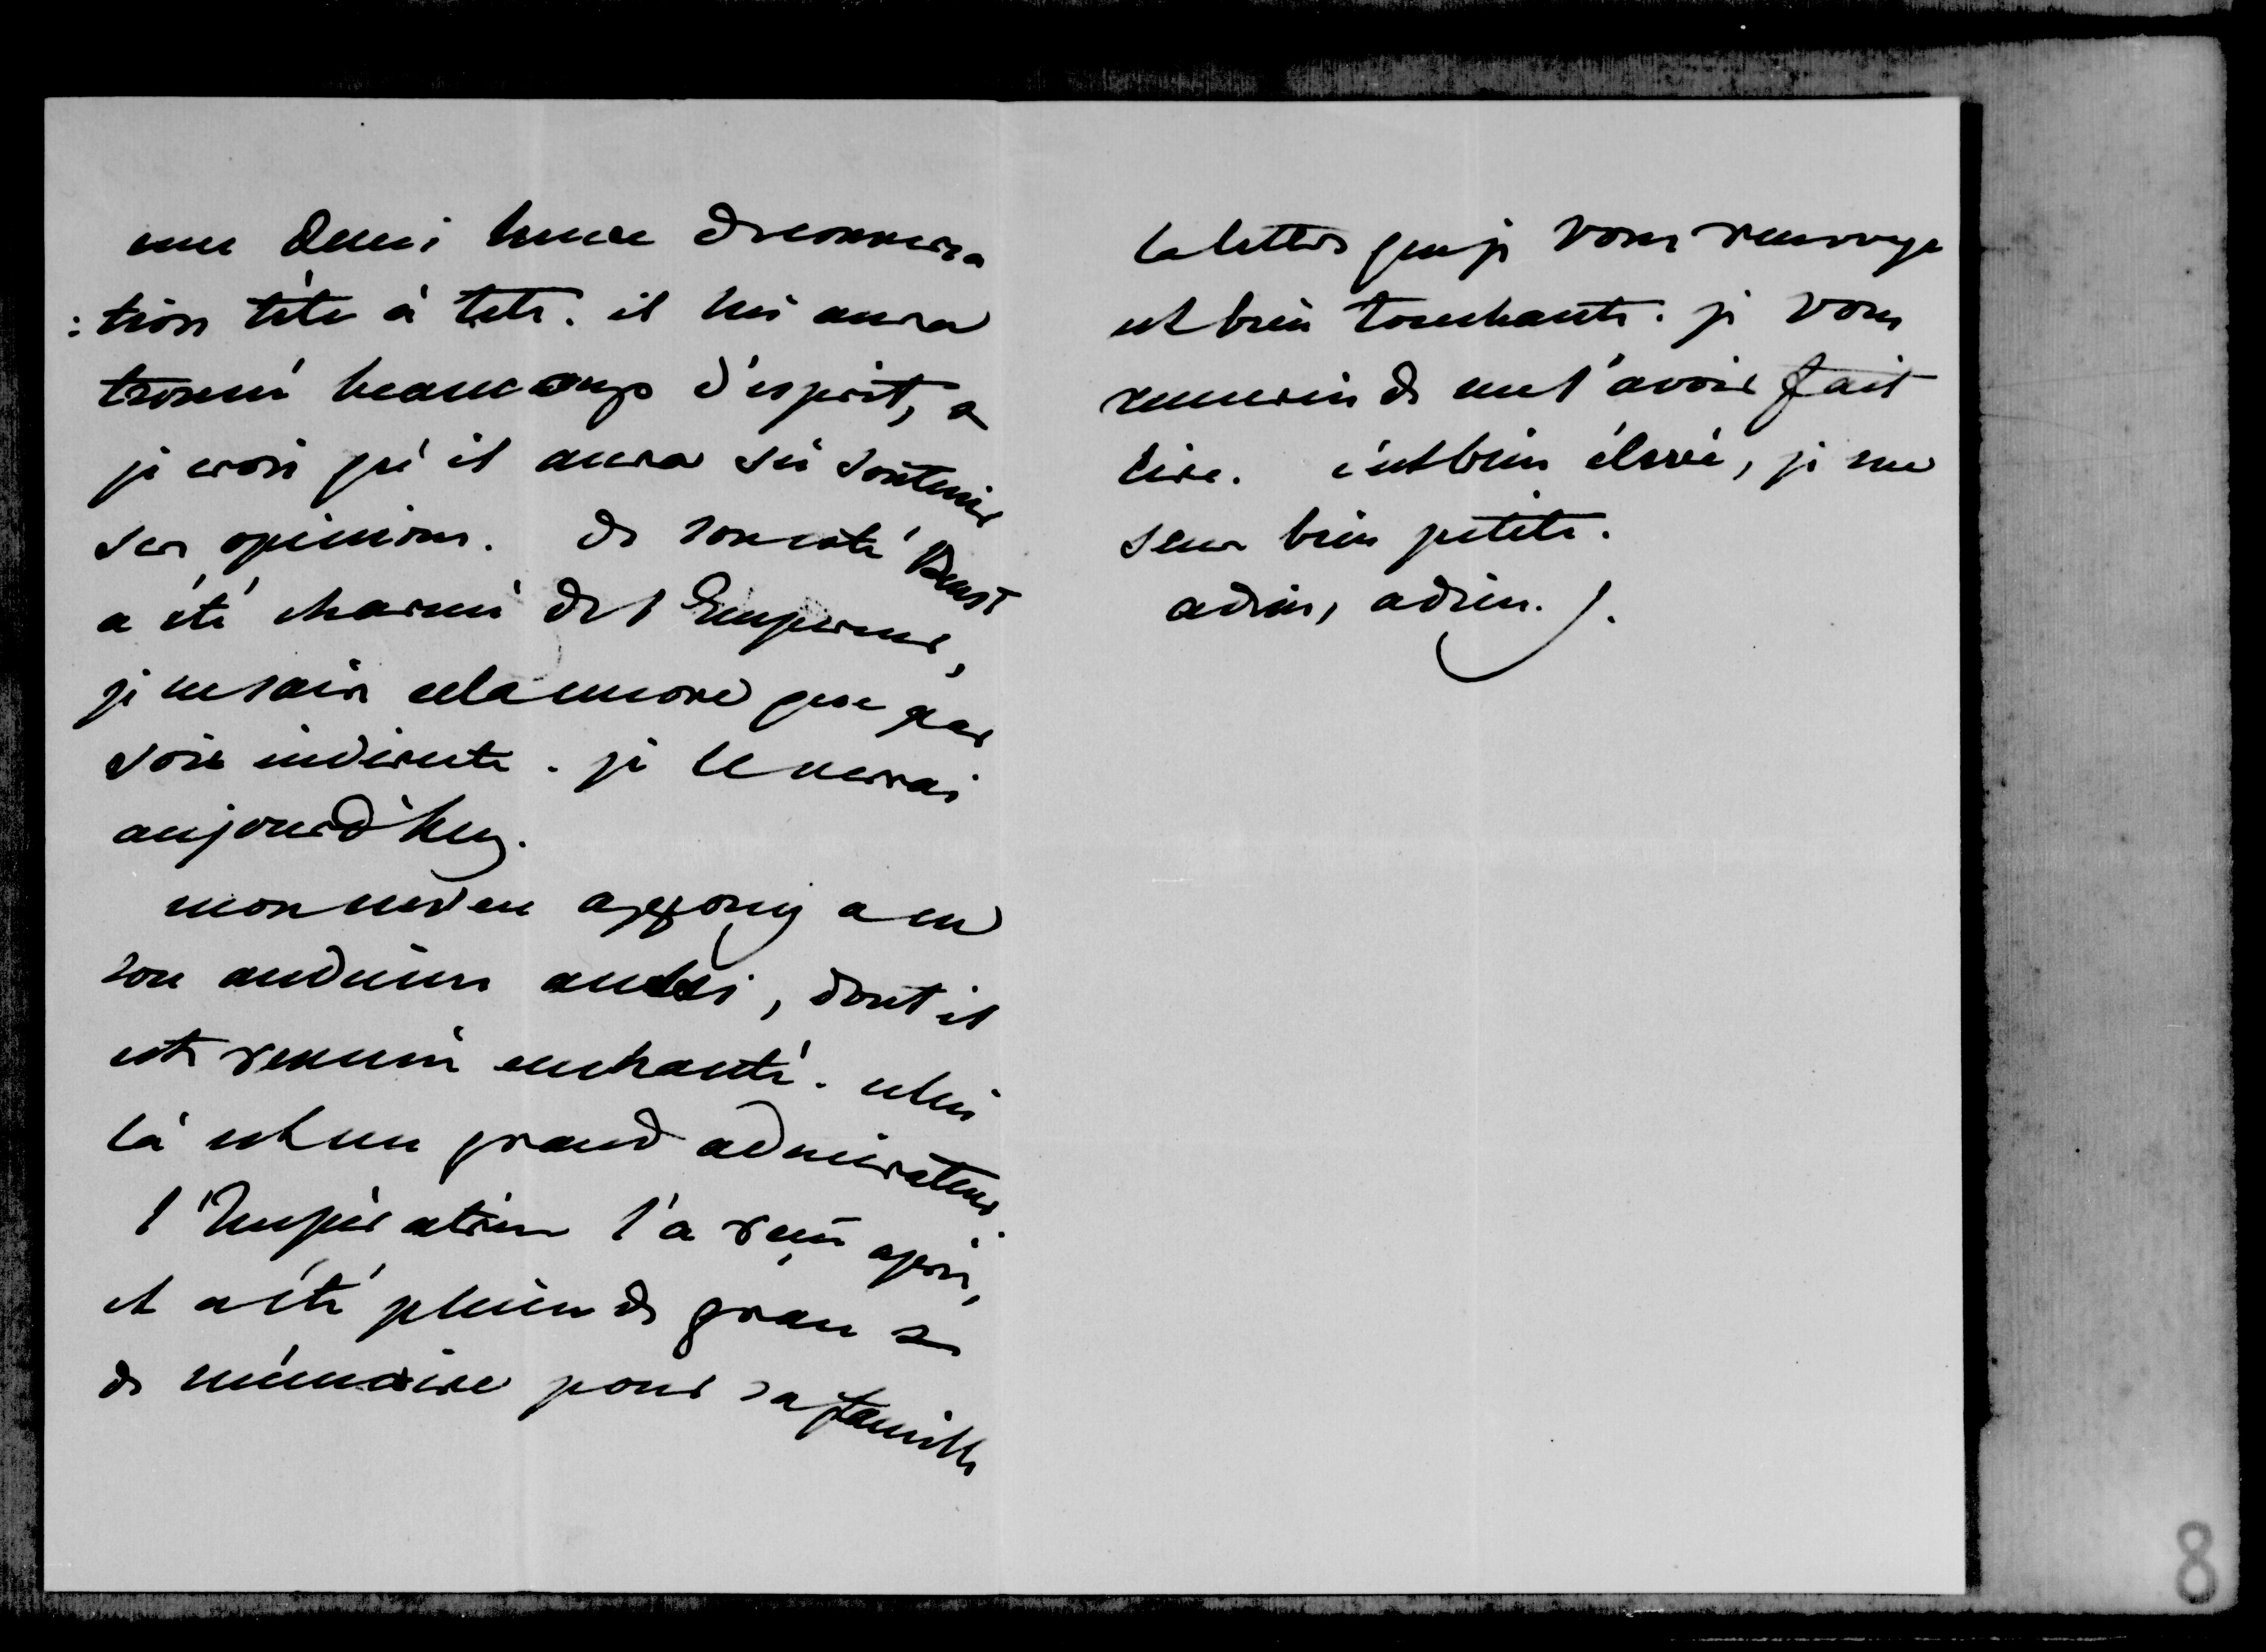 une demi heure de conversa
:tion tête à tete. il lui aura
trouvé beaucoup d'esprit, &
je crois qu'il aura su soutenir
ses opinions. de son coté Beust
a été charmé de l'Empereur,
je ne sais cela encore que par
voie indirecte. je le verrai
aujourd'huy.
mon neveu appony a eu
son audience aussi, dont il
est revenu enchanté. celui
là est un grand admirateur.
l'Impératrice l'a reçu après,
et a été pleine de grace &
de mémoire pour sa famille
la lettre que je vous renvoye
est bien touchante. je vous
remercie de me l'avoir fait
lire. c'est bien élevé, je me
sens bien petite.
adieu, adieu.
8